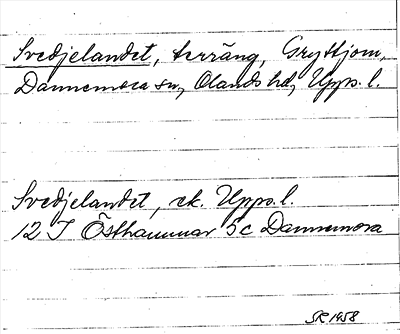 Svedjelandet, terräng, Gryttjom,
Dannemora sn, Olands hd, Upps. l.
Svedjelandet, ek. Upps. l.
12 I Östhammar 5c Dannemora
SR 1958